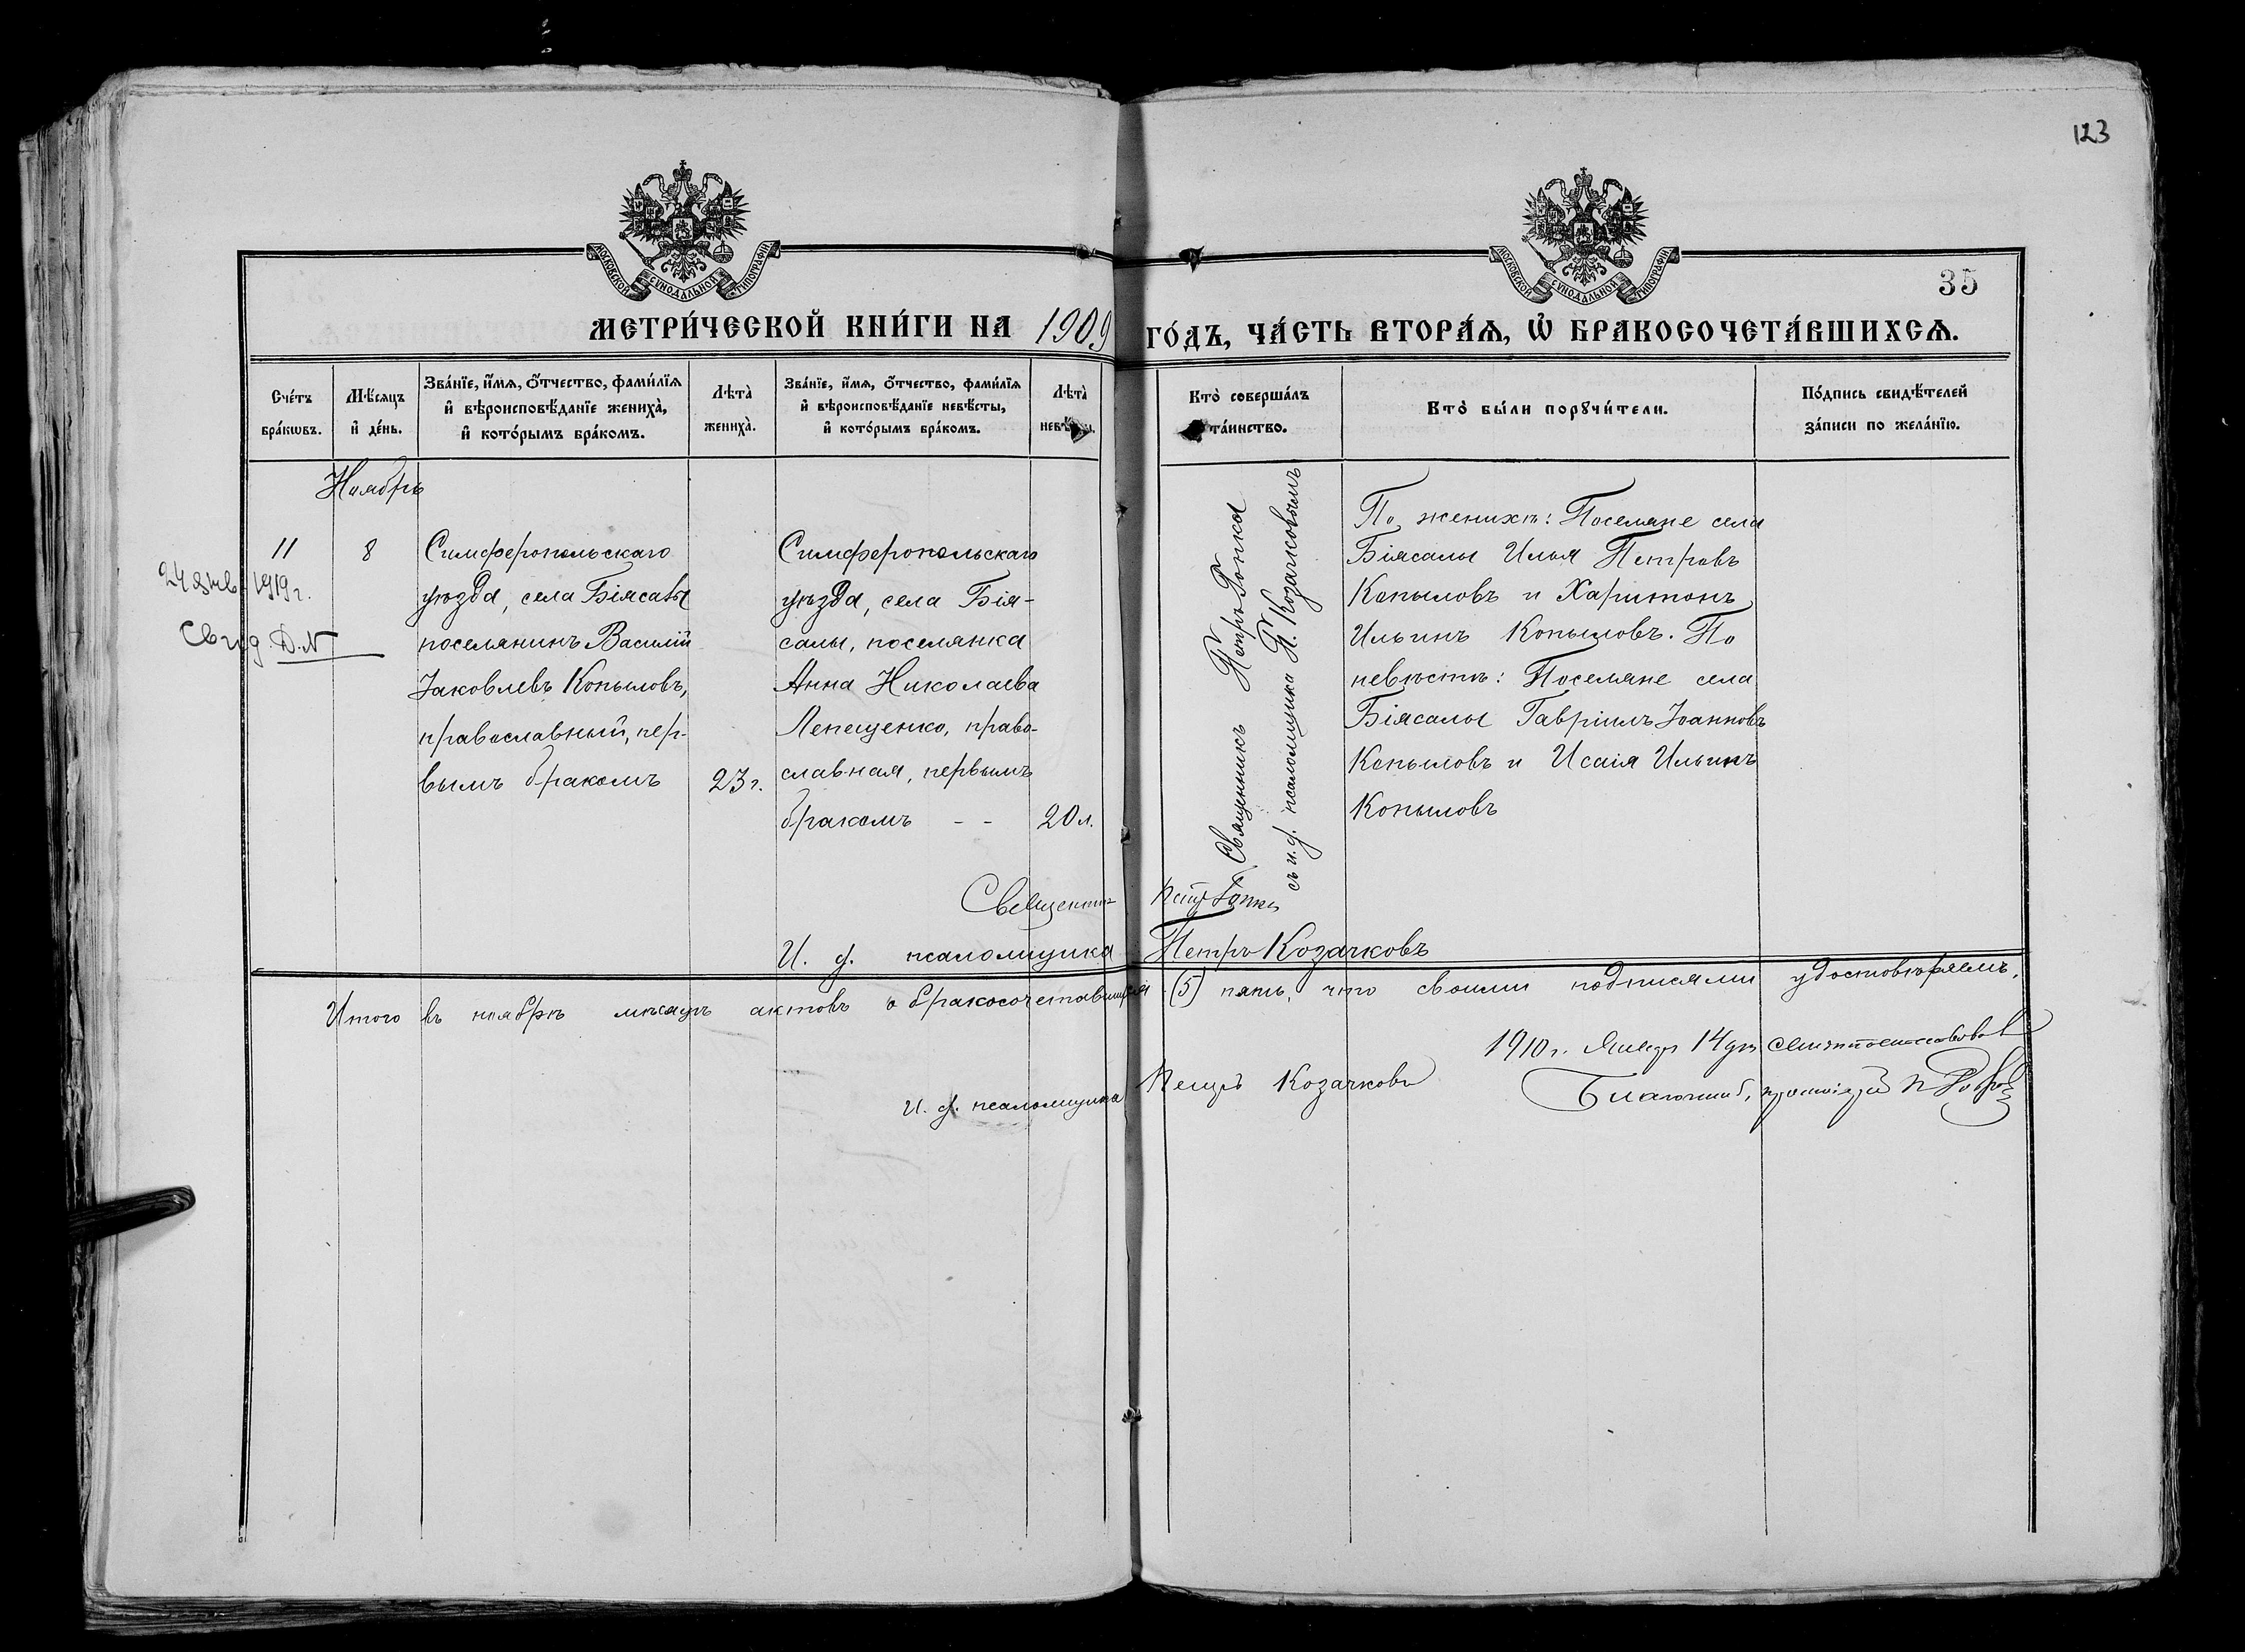 123
МОСКОВСКОЙ СУНОДАЛЬНОЙ ТИПОГРАФІИ
МОСКОВСКОЙ СУНОДАЛЬНОЙ ТИПОГРАФІИ
35
МЕТРИ́ЧЕСКОЙ КНИ́ГИ НА 1909 ГО́ДЪ, ЧА́СТЬ ВТОРА́Ѧ, Ѡ҆ БРАКОСОЧЕТА́ВШИХСѦ.
Сче́тъ
бра́кѡвъ.
Мѣ́сѧцъ
и҆ де́нь.
Зва́нїе, и҆́мѧ, ѻ҆́тчество, фами́лїѧ
и҆ вѣроисповѣ́данїе жениха̀,
и҆ кото́рымъ бра́комъ.
Лѣта̀
жениха̀.
Зва́нїе, и҆́мѧ, ѻ҆́тчество, фами́лїѧ
и҆ вѣроисповѣ́данїе невѣ́сты,
и҆ кото́рымъ бра́комъ.
Лѣта̀
Кто̀ соверша́лъ
та́инство.
Кто̀ бы́ли порꙋчи́тели.
По́дпись свидѣ́телей
за́писи по жела́нїю.
Ноябрь
11
8
24 янв. 1919 г.
Свид. Д.N
Симферопольскаго
уѣзда, села Біясалы
поселянинъ Василій
Іаковлевъ Копыловъ,
православный, пер-
вымъ бракомъ
23 г.
Симферопольскаго
уѣзда, села Бія-
салы, поселянка
Анна Николаева
Лепещенко, право-
славная, первымъ
бракомъ - -
20 л.
Священникъ Петръ
съ и. ф. псаломщика П. Козачковымъ
По женихѣ: Поселяне села
Біясалы Илья Петровъ
Копыловъ и Харитонъ
Ильинъ Копыловъ. По
невѣстѣ: Поселяне села
Біясалы Гавріилъ Іоанновъ
Копыловъ и Исаія Ильинъ
Копыловъ
Священникъ Петръ
И. ф. псаломщика Петръ Козачковъ
Итого въ ноябрѣ мѣсяцѣ актовъ о бракосочетавшихся (5) пять, что своими подписями удостовѣряемъ.
1910 г. Января 14 дня свидѣтельствовалъ
И. ф. псаломщика Петръ Козачковъ
Благочинный, протоіерей